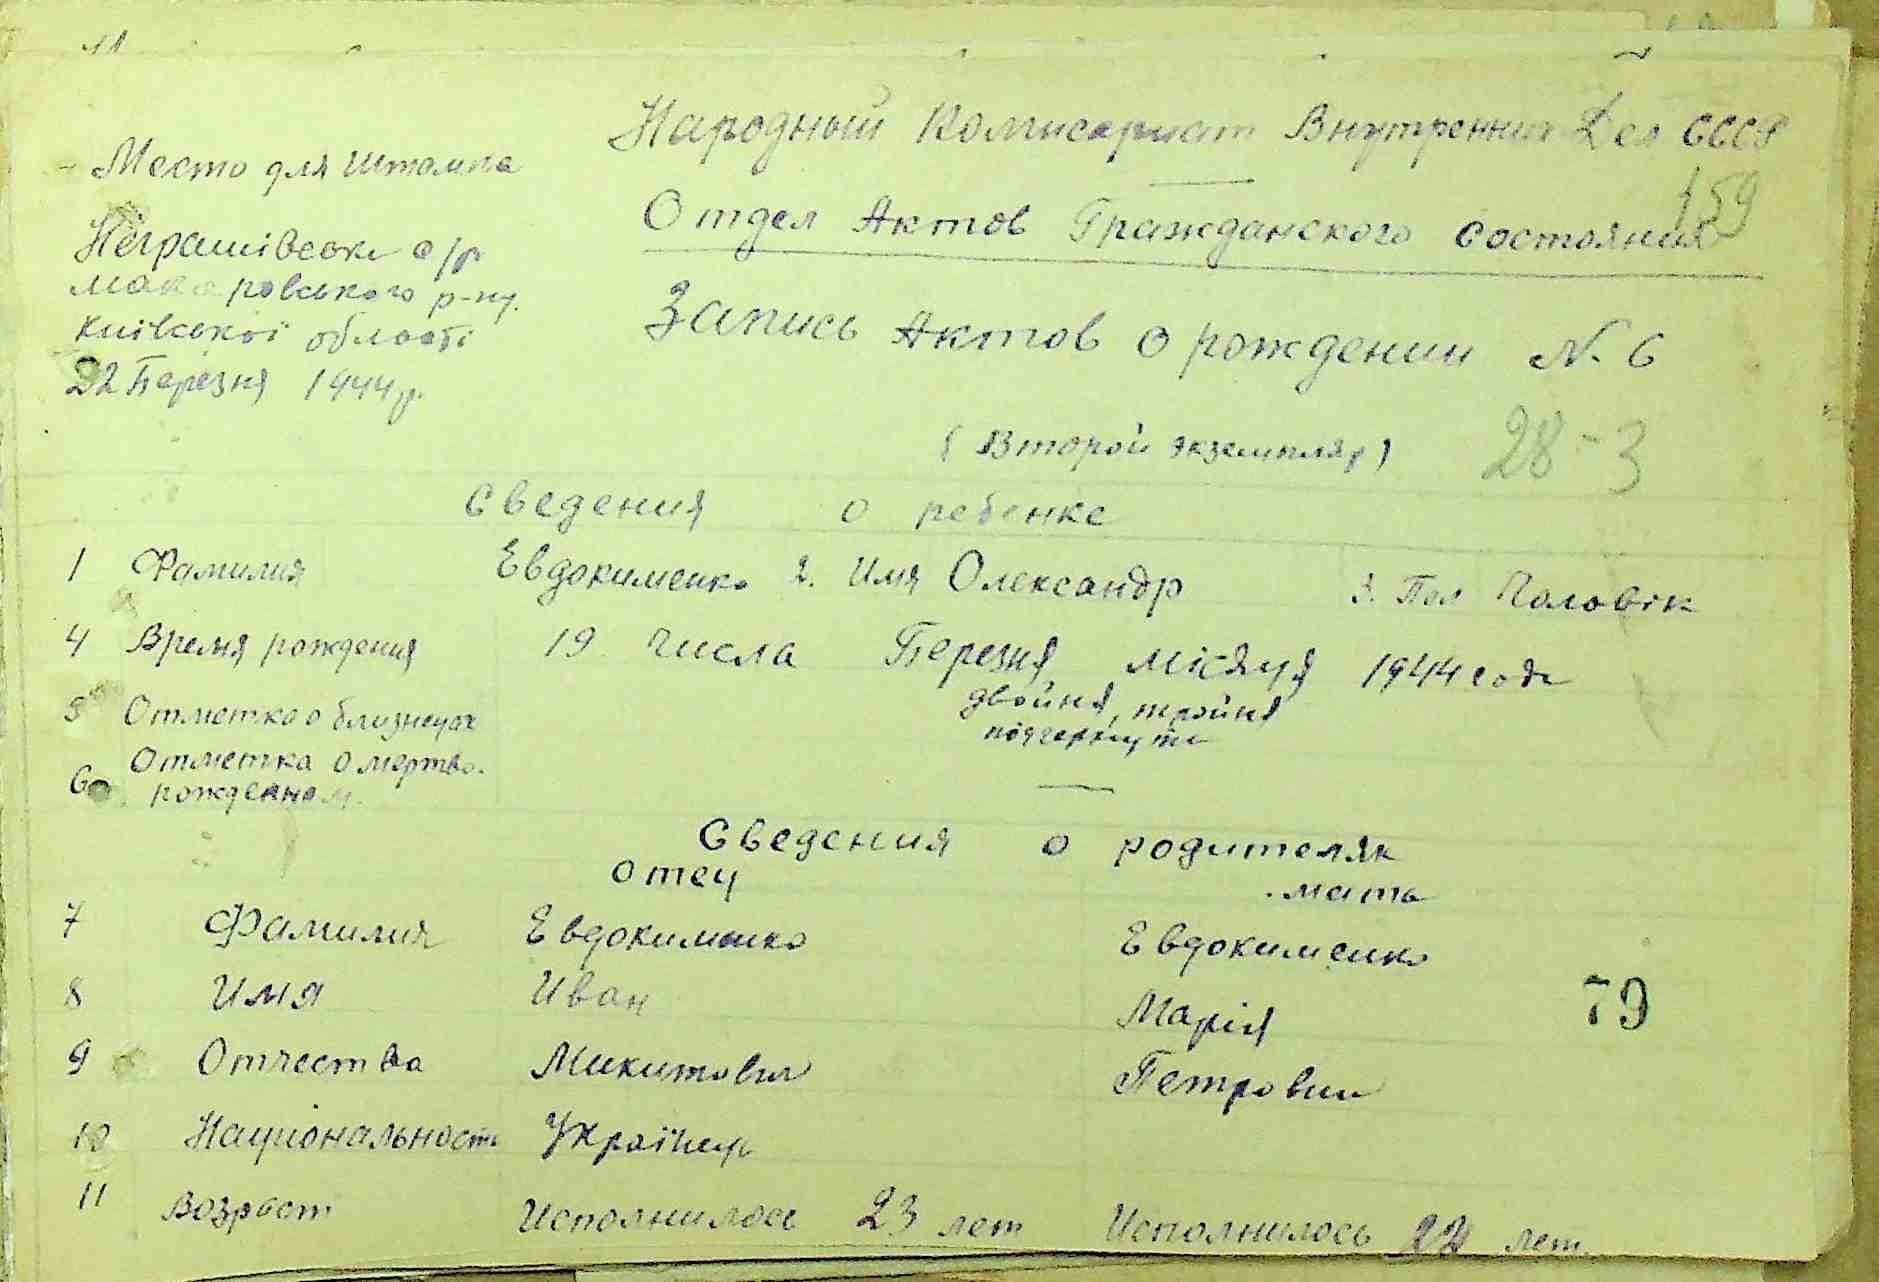 Народный Комисариат Внутренних Дел СССР
Место для штампа
159
Отдел Актов Гражданского Состояния
Неграшівськ с/р
Макаровського р-ну.
Київської області
22 Березня 1944 р.
Запись Актов о рождении N. 6
(Второй экземпляр)
28-3
Сведения о ребенке
1 Фамилия Евдокименко 2. Имя Олександр 3. Пол Чоловік
4 Время рождения 19 числа Березня місяця 1944 года
5 Отметка о близнецах двойня, тройня
подчеркнути
6 Отметка о мертво-
рожденном —
Сведения о родителях
Отец мать
7 Фамилия Евдокименко Евдокименко
8 Имя Иван Марія
79
9 Отчество Микитович Петровна
10 Національность Українець
11 Возраст Исполнилось 23 лет Исполнилось лет